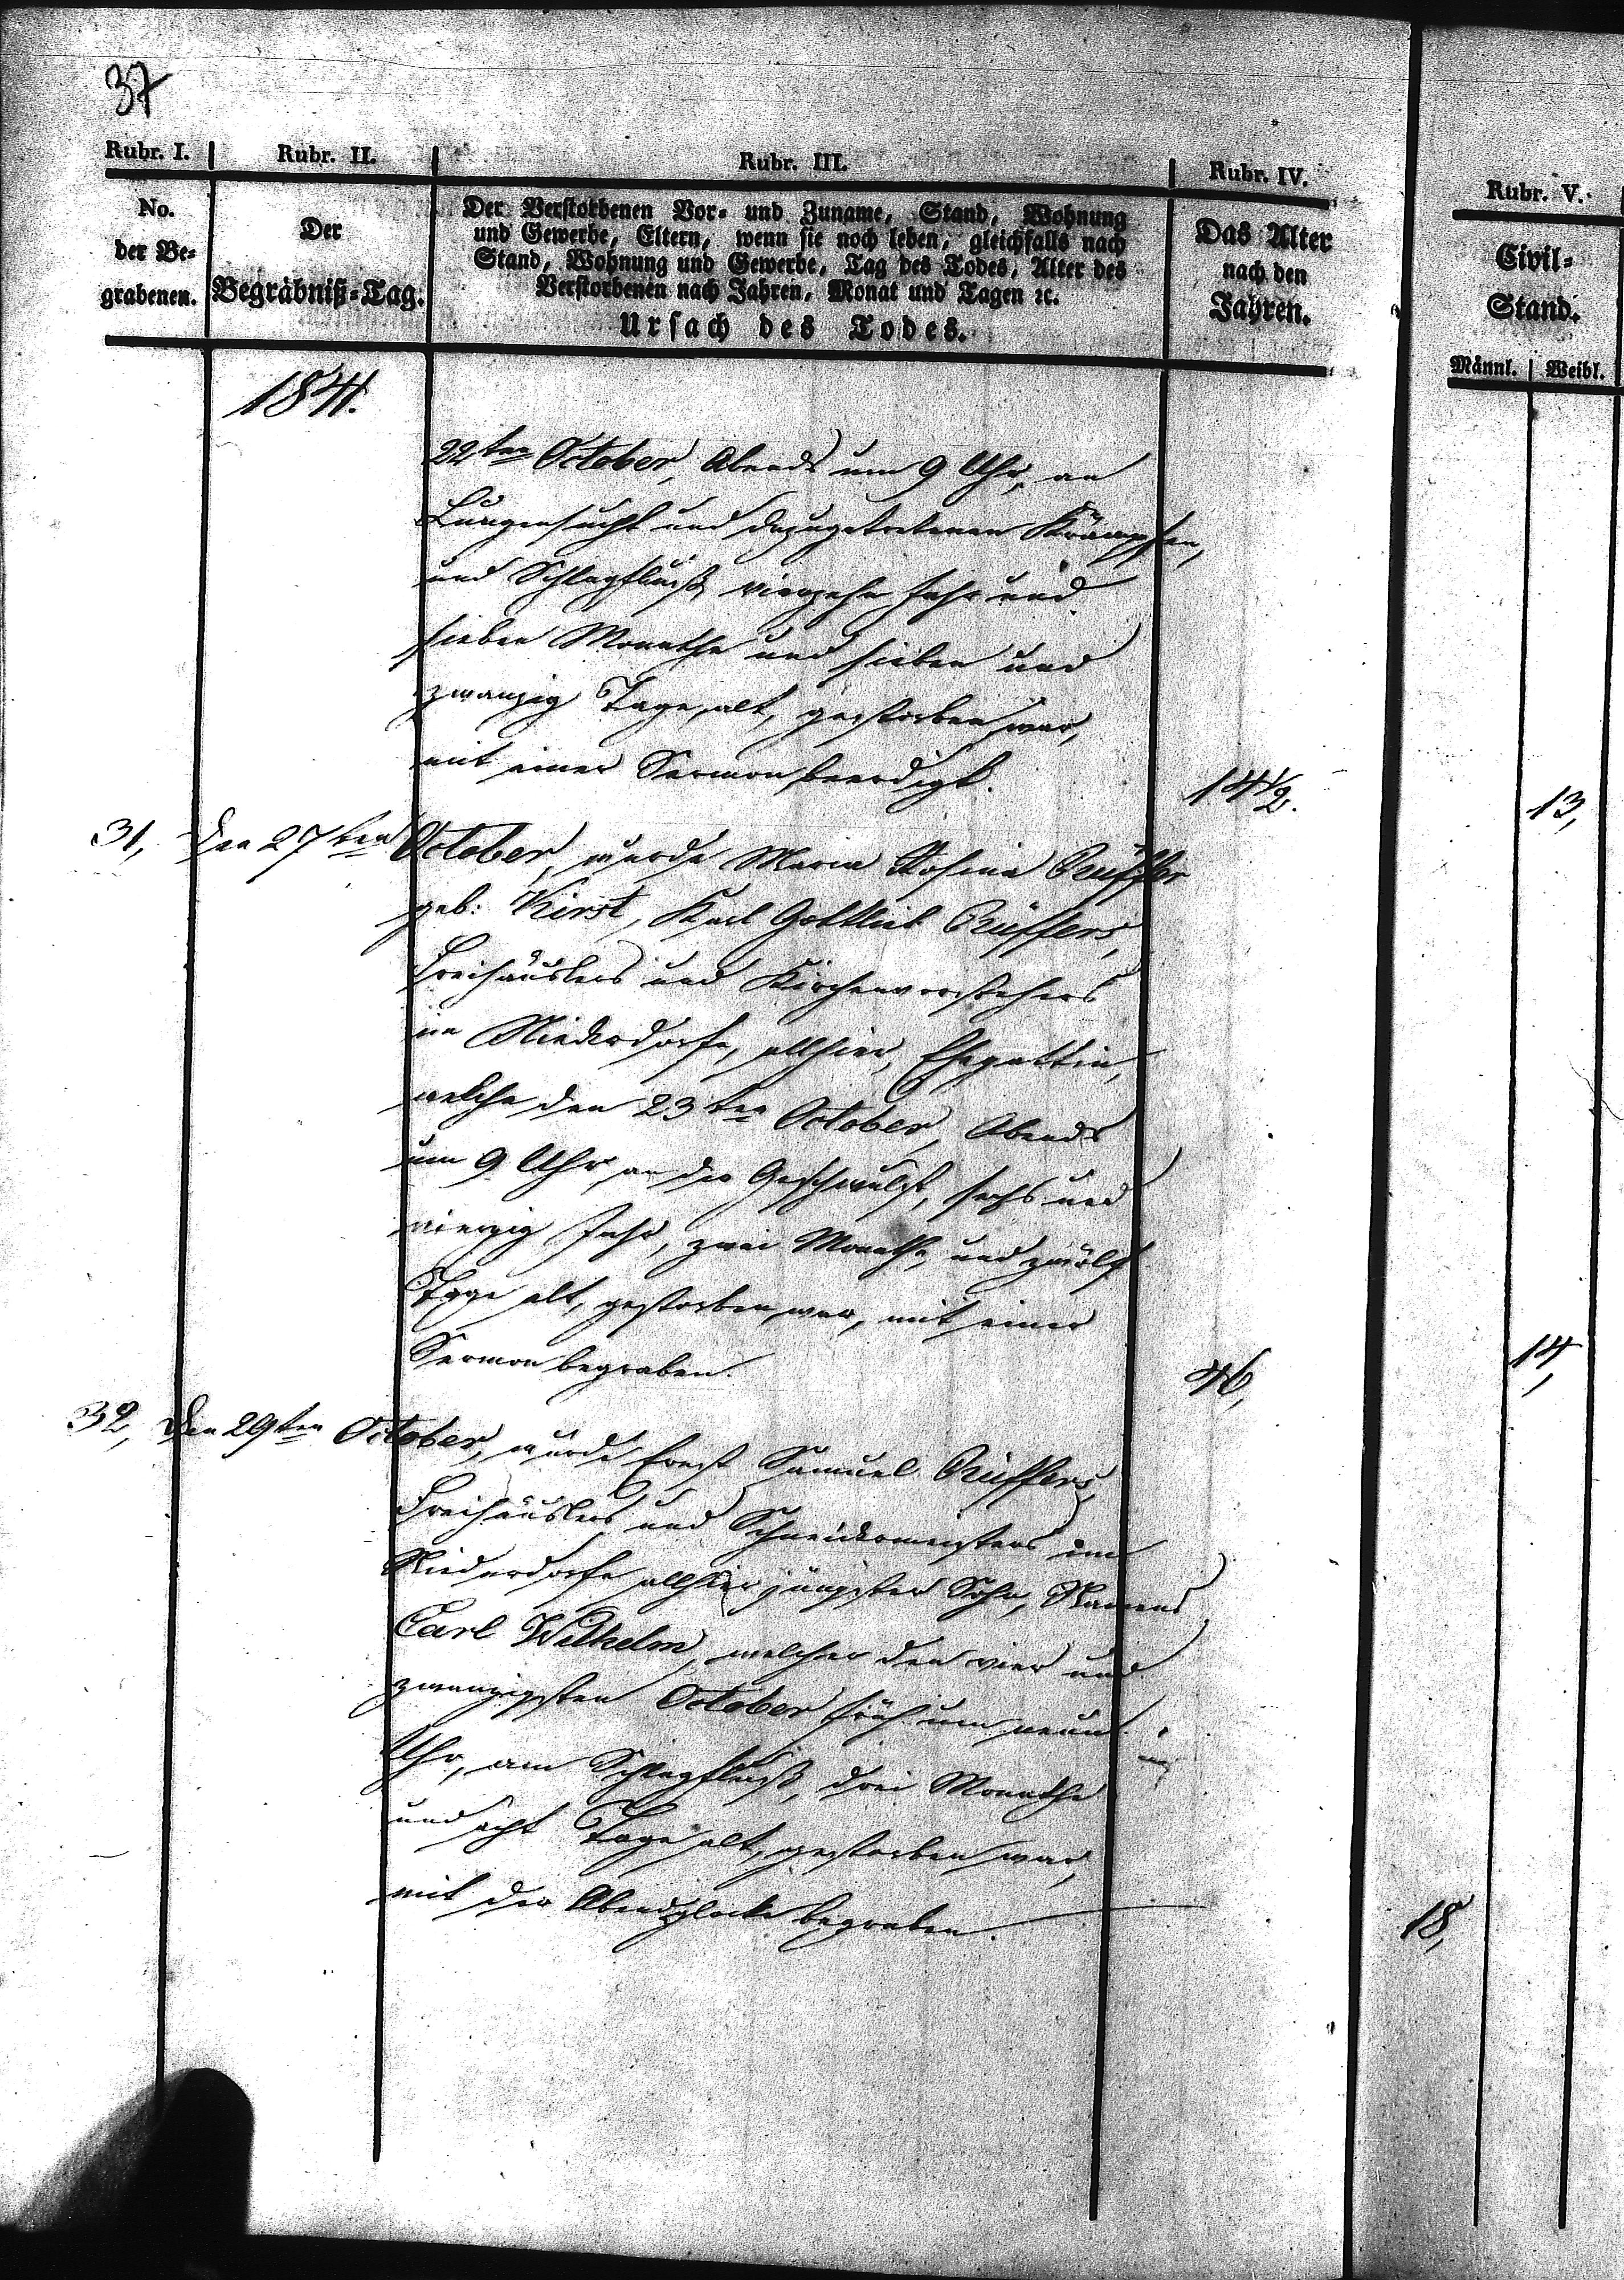 37
Rubr. I. Rubr. II. Rubr. III. Rubr. IV. Rubr. V.
No.
der Be-
grabenen.
Der
Begräbniß-Tag.
Der Verstorbenen Vor- und Zuname, Stand, Wohnung
und Gewerbe, Eltern, wenn sie noch leben, gleichfalls nach
Stand, Wohnung und Gewerbe, Tag des Todes, Alter des
Verstorbenen nach Jahren, Monat und Tagen ꝛc.
Ursach des Todes.
Das Alter
nach den
Jahren.
Civil-
Stand.
Männl. Weibl.
1841.
22ten October, Abends um 9 Uhr, an
Lungensucht und dazugetretenen Krämpfen,
und Schlagfluß vierzehn Jahr und
sieben Monathe und sieben und
zwanzig Tage, alt, gestorben war,
mit einer Sermon beerdigt. 14 1/2. 13,
31, Den 27ten October, wurde Maria Rosina Rüffer
geb: Kirst, Karl Gottlieb Rüffers,
Freihäuslers und Kirchenvorstehers
im Niederdorfe, allhier, Ehegattin,
welche den 23ten October, Abends
um 9 Uhr, an der Geschwulst, sechs und
vierzig Jahr, zwei Monathe und zwölf
Tage alt, gestorben war, mit einer
Sermon begraben. 46, 14,
32, Den 29ten October, wurde Ernst Samuel Rüffers,
Freihäuslers und Schneidermeisters im
Niederdorfe allhier jüngster Sohn, Namens
Carl Wilhelm, welcher den vier und
zwanzigsten October früh um neun
Uhr, am Schlagfluß, drei Monathe
und acht Tage alt, gestorben war,
mit der Abendglocke begraben. 18,